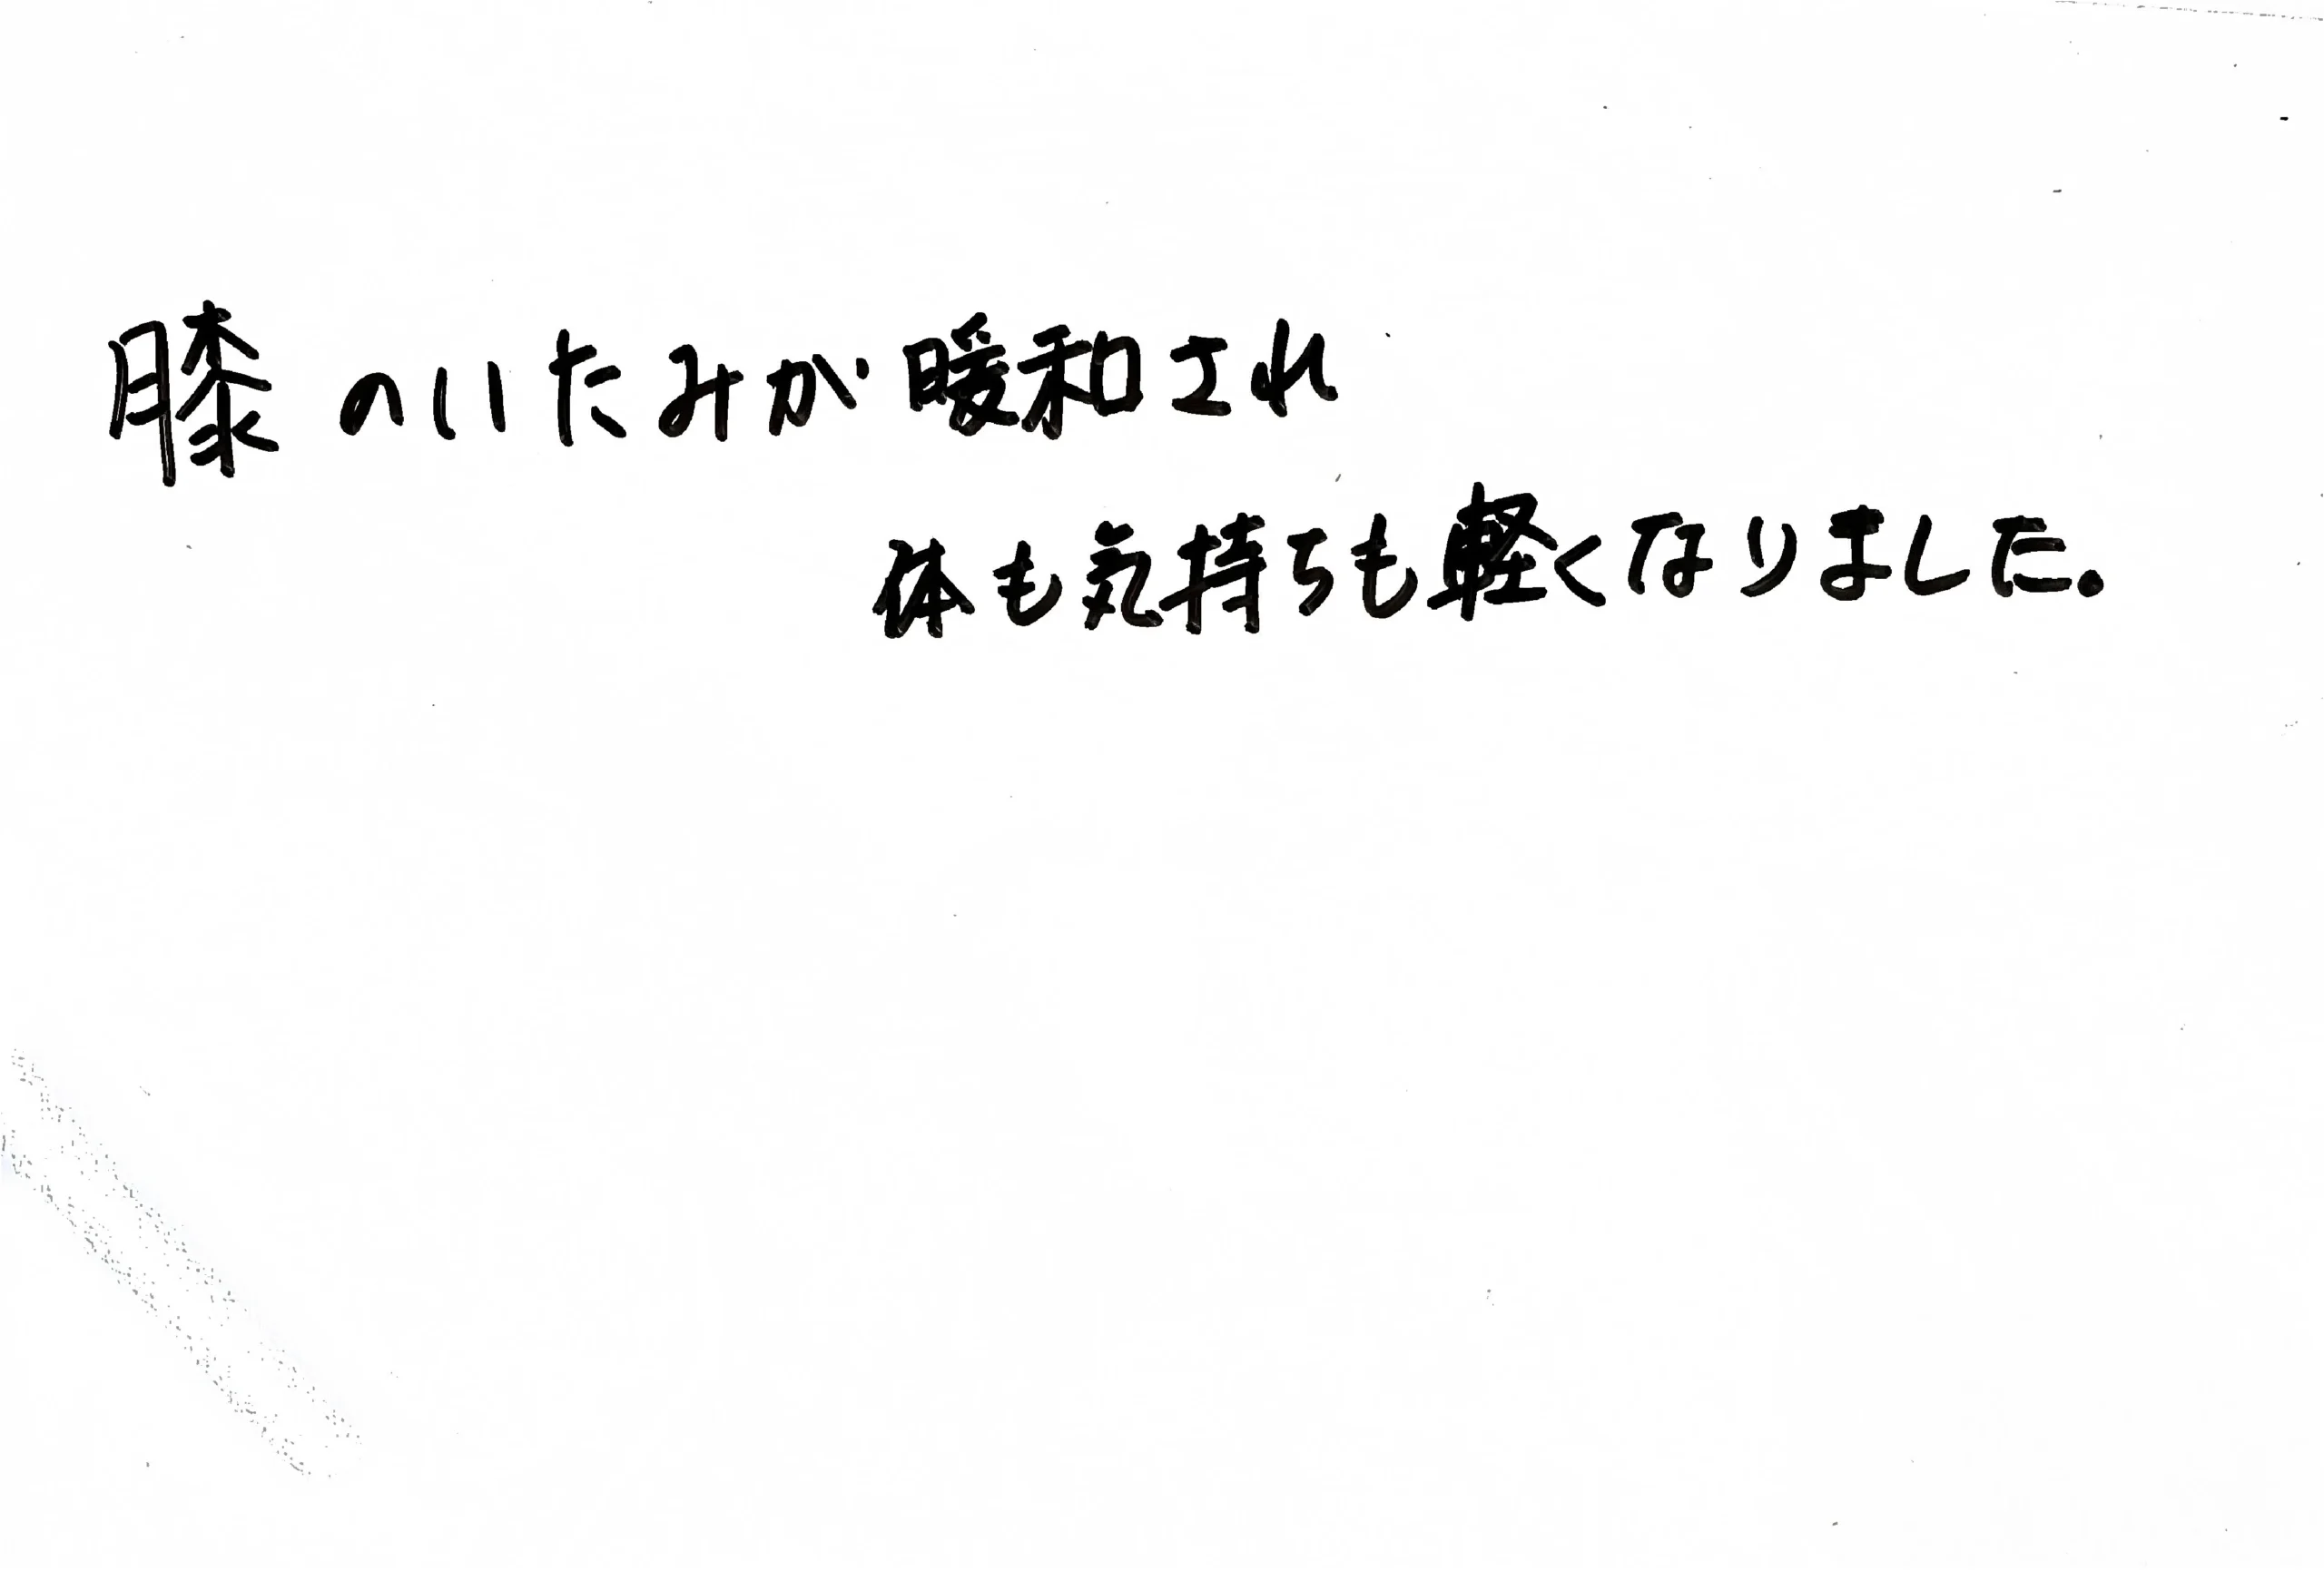 膝のいたみが暖和され
体も気持ちも軽くなりました。